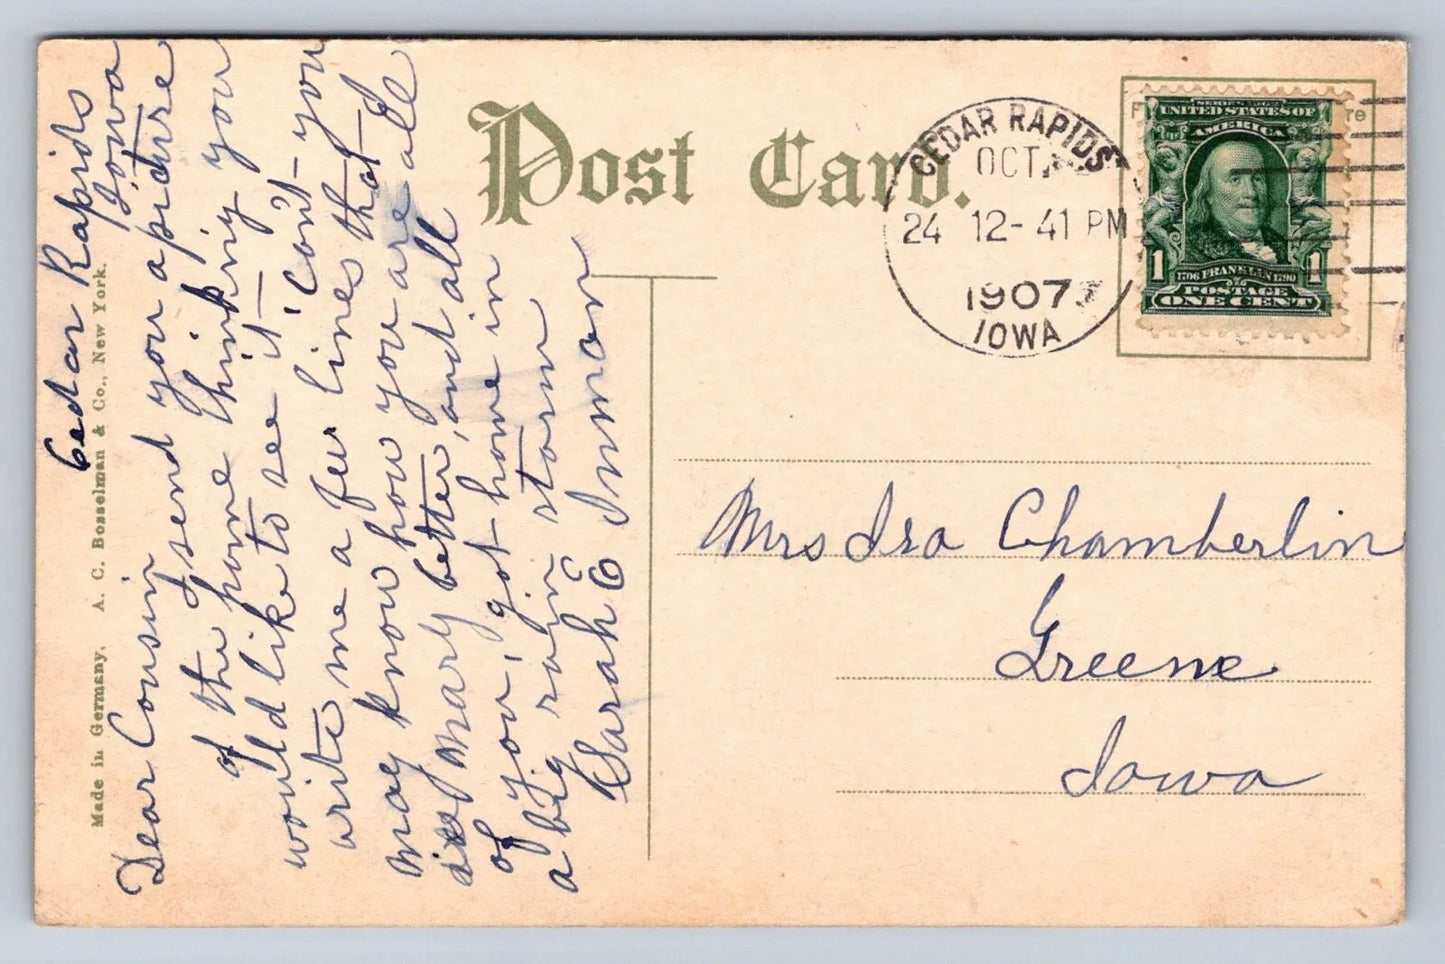 Post Card.
CEDAR RAPIDS
OCT
24 12-41 PM
1907
IOWA
SERIES 1902
UNITED STATES OF
AMERICA
1 1706 FRANKLIN 1790 1
POSTAGE
ONE CENT
Made in Germany. A. C. Bosselman & Co., New York.
Cedar Rapids
Iowa
Dear Cousin
I send you a picture
of the home thinking you
would like to see it
write me a few lines that I
may know how you are all
is Mary better, and all
of you, got home in
a big rain storm
Sarah E Inman
Mrs Ira Chamberlin
Greene
Iowa